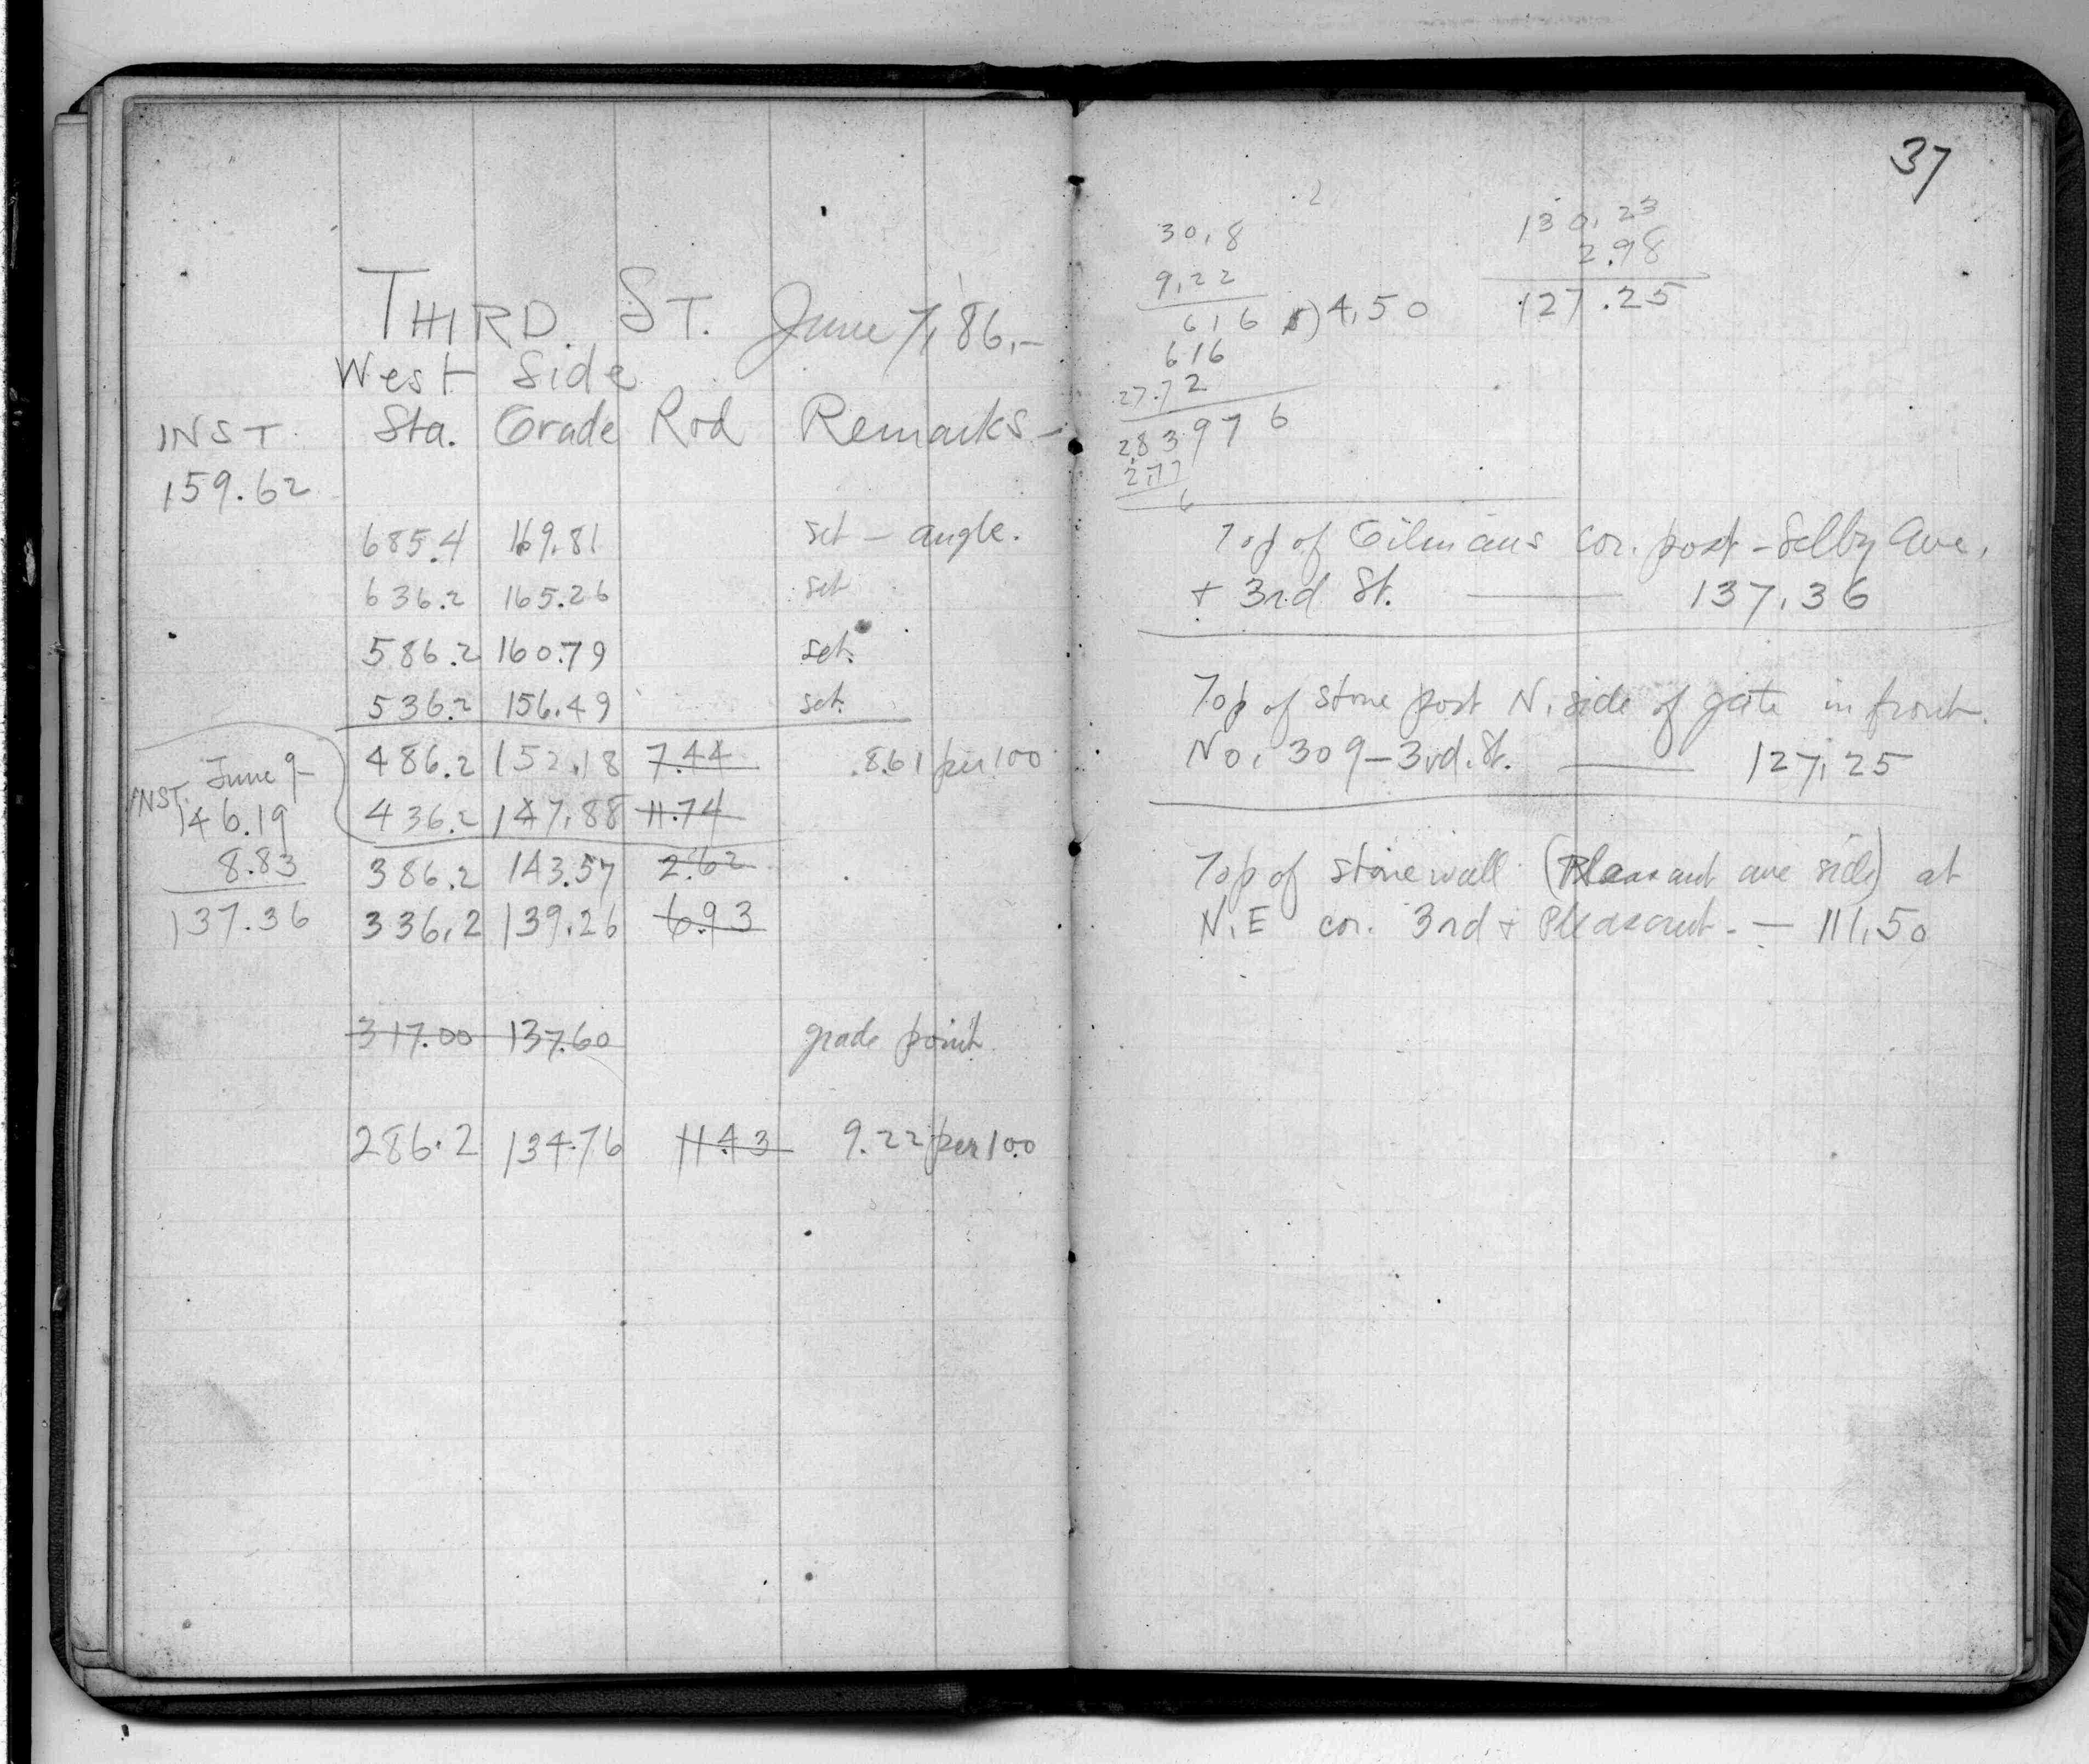 THIRD ST. June 7, '86,-
West Side
INST. Sta. Grade Rod Remarks -
159.62
685.4 169.81 set - angle.
636.2 165.26 set
586.2 160.79 set.
536.2 156.49 set.
486.2 152.18 7.44 8.61 per 100
June 9-
INST. 146.19 436.2 147.88 11.74
8.83 386.2 143.57 2.62
137.36 336.2 139.26 6.93
317.00 137.60 grade point
286.2 134.76 11.43 9.22 per 100
37
30.8
9.22
616
616
27.72
283976
2.77
6
4.50
130.23
2.98
127.25
Top of Gilmans cor. post - Selby Ave.
+ 3rd St. — 137.36
Top of stone post N. side of gate in front.
No. 309-3rd. St. — 127.25
Top of stone wall (Pleasant ave side) at
N.E cor. 3rd + Pleasant. - — 111.50